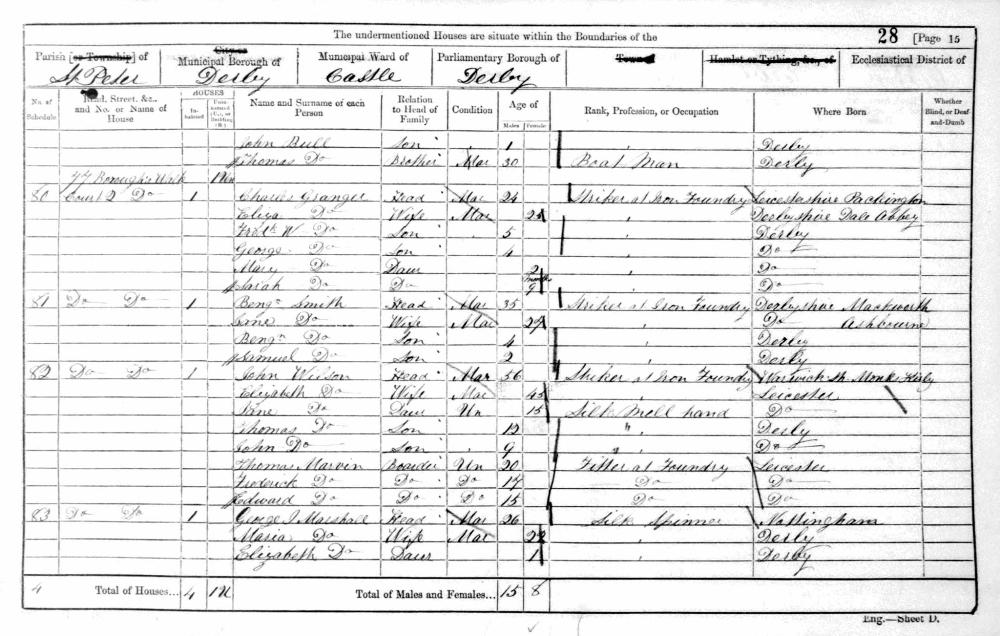 The undermentioned Houses are situate within the Boundaries of the 28 [Page 15
Parish [or Township] of St. Peter
City or Municipal Borough of Derby
Municipal Ward of Castle
Parliamentary Borough of Derby
Town of
Hamlet or Tything, &c., of
Ecclesiastical District of
No. of Schedule
Road, Street, &c., and No. or Name of House
HOUSES
Inhabited
Uninhabited (U.), or Building (B.)
Name and Surname of each Person
Relation to Head of Family
Condition
Age of
Males Females
Rank, Profession, or Occupation
Where Born
Whether Blind, or Deaf-and-Dumb
John Bull Son 1 " Derby
Thomas Do Brother Mar 30 Boat Man Derby
77 Borough's Walk 1 U
80 Court 2 Do 1 Charles Granger Head Mar 24 Striker at Iron Foundry Leicestershire Packington
Eliza Do Wife Mar 24 " Derbyshire Dale Abbey
Fredk W. Do Son 5 " Derby
George Do Son 4 " Do
Mary Do Daur 2 " Do
Sarah Do Do Months 9 " Do
81 Do Do 1 Benjn Smith Head Mar 35 Striker at Iron Foundry Derbyshire Mackworth
Jane Do Wife Mar 29 " Do Ashbourne
Benjn Do Son 4 " Derby
Samuel Do Son 2 " Derby
82 Do Do 1 John Wilson Head Mar 56 Striker at Iron Foundry Warwick Sh Monks Kirby
Elizabeth Do Wife Mar 45 " Leicester
Jane Do Daur Un 15 Silk Mill hand Do
Thomas Do Son 12 " Derby
John Do Son 9 " Do
Thomas Marvin Boarder Un 20 Fitter at Foundry Leicester
Frederick Do Do Do 17 Do Do
Edward Do Do Do 15 Do Do
83 Do Do 1 George J Marshall Head Mar 26 Silk Spinner Nottingham
Maria Do Wife Mar 22 " Derby
Elizabeth Do Daur 1 " Derby
4 Total of Houses... 4 1 U Total of Males and Females... 15 8
Eng.—Sheet D.